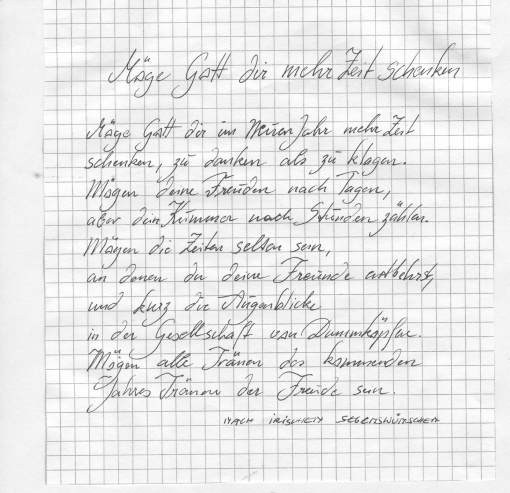 Möge Gott dir mehr Zeit schenken
Möge Gott dir im Neuen Jahr mehr Zeit
schenken, zu danken als zu klagen.
Mögen deine Freuden nach Tagen,
aber dein Kummer nach Stunden zählen.
Mögen die Zeiten selten sein,
an denen du deine Freunde entbehrst,
und kurz die Augenblicke
in der Gesellschaft von Dummköpfen.
Mögen alle Tränen des kommenden
Jahres Tränen der Freude sein.
NACH IRISCHEN SEGENSWÜNSCHEN